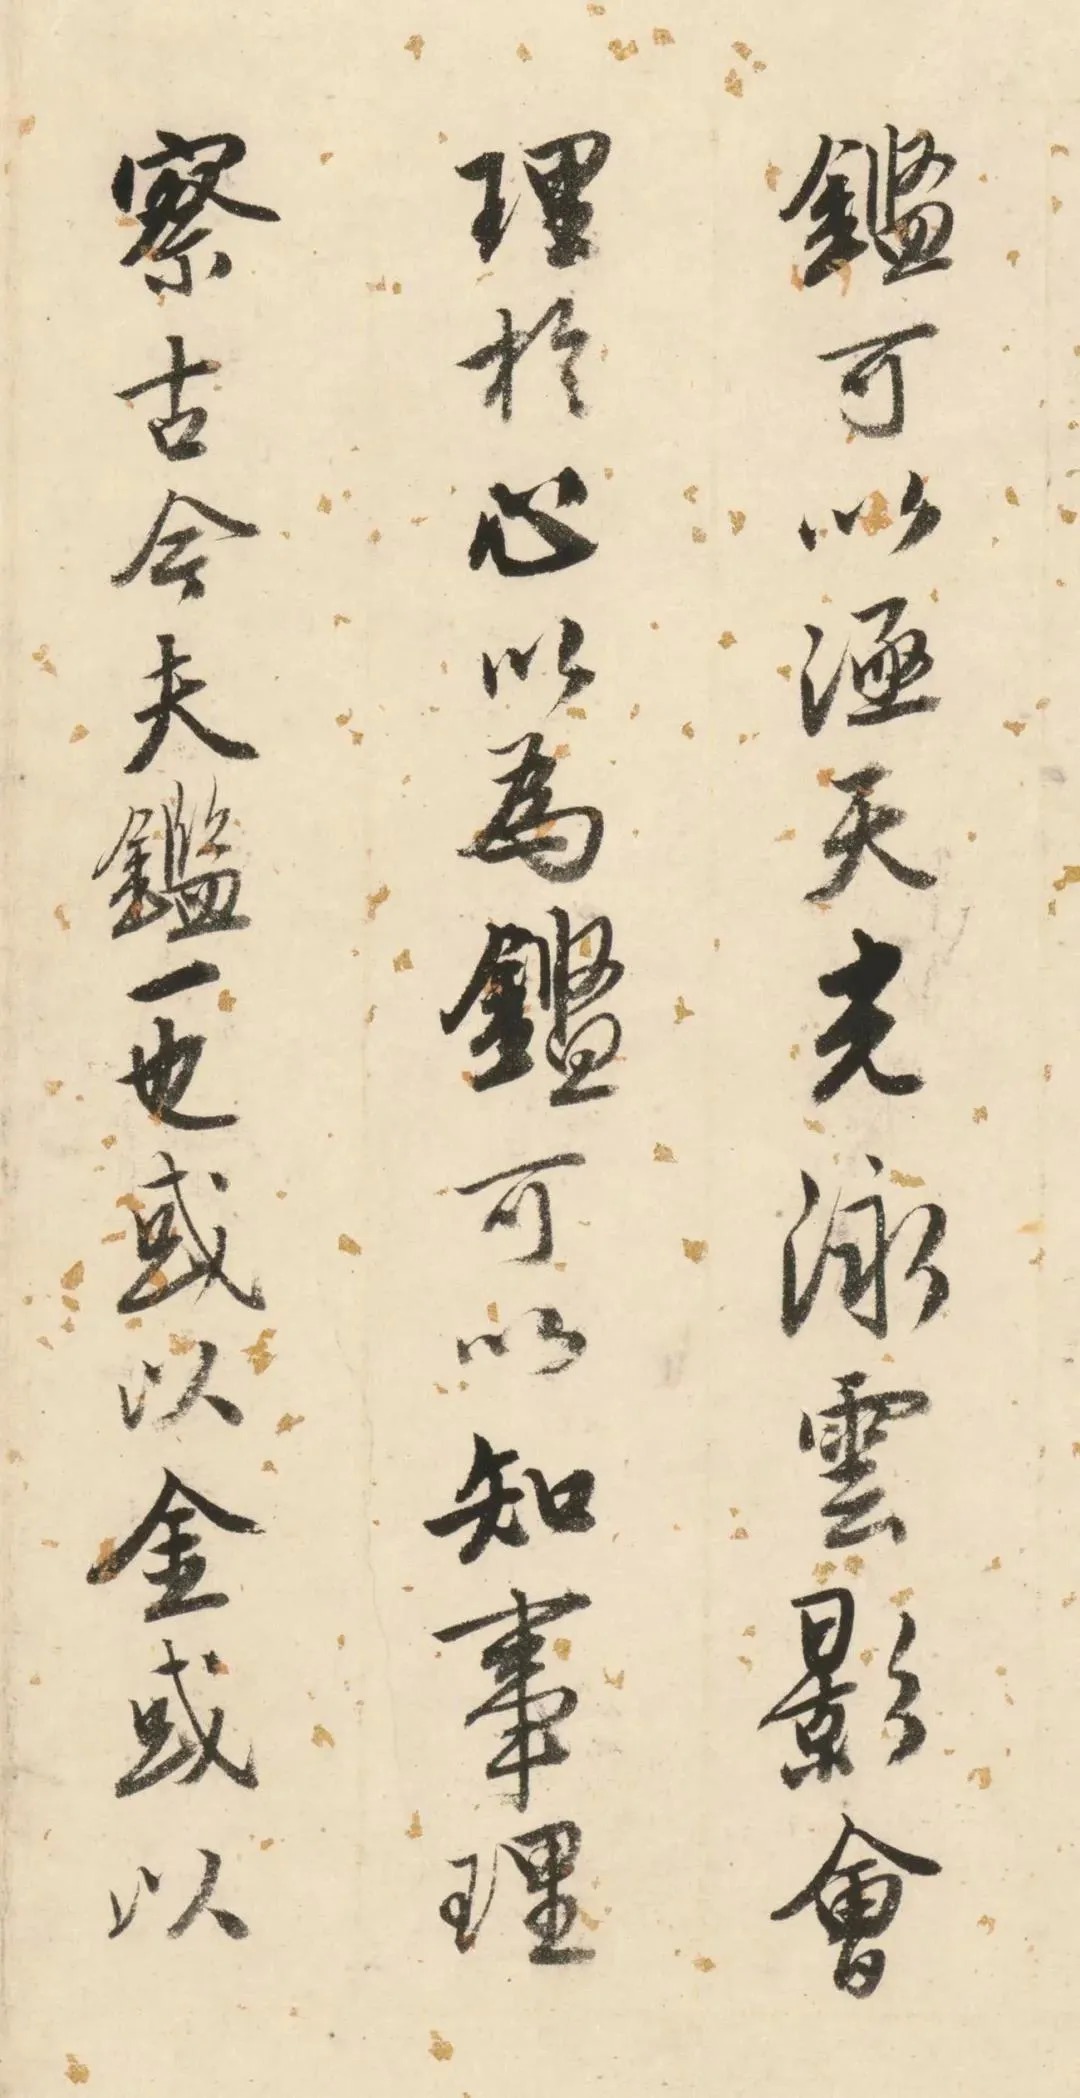 鑑可以涵天光泳雲影會
理於心以為鑑可以知事理
察古今夫鑑一也或以金或以